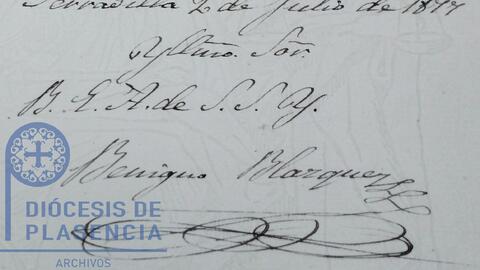 Serradilla 2 de Julio de 1877
Yltmo. Sor.
B. E. A. de S. S. Y.
Benigno Blazquez
DIÓCESIS DE
PLASENCIA
ARCHIVOS